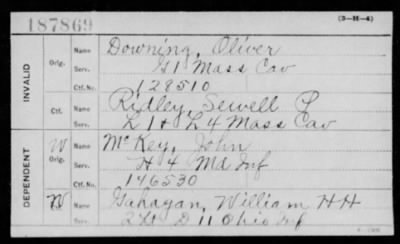 187869
(3—H—4)
INVALID
Orig.
Name Downing, Oliver
Serv. G 1 Mass Cav
Ctf. No. 128510
Ctf.
Name Ridley, Sewell P
Serv. L 1 & L 4 Mass Cav
DEPENDENT
W
Orig.
Name McKey, John
Serv. H 4 Md Inf
Ctf. No. 146530
W
Name Gahagan, William H H
2 Lt D 11 Ohio Inf